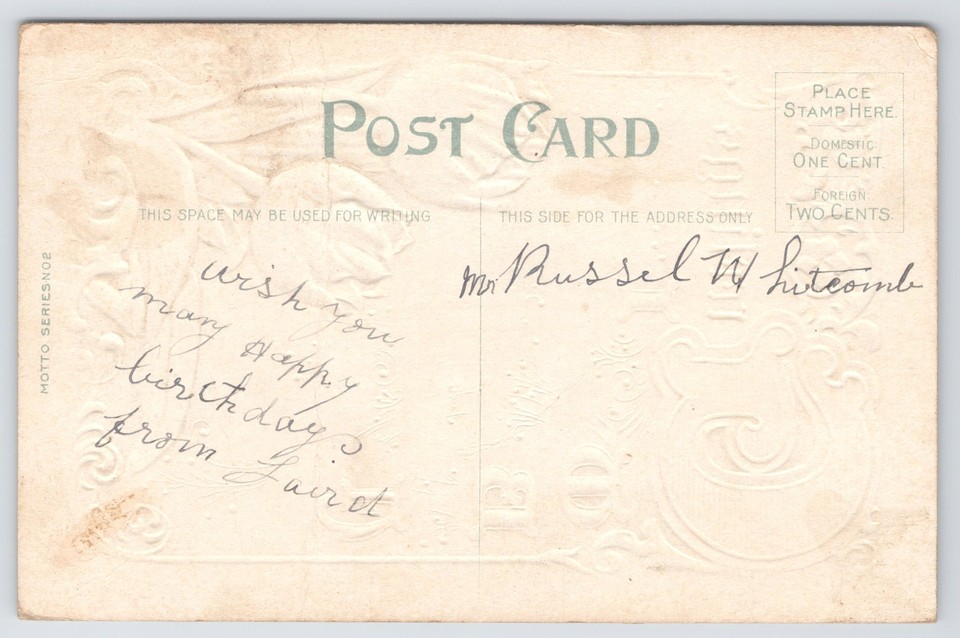 POST CARD
PLACE
STAMP HERE.
DOMESTIC
ONE CENT.
FOREIGN
TWO CENTS.
THIS SPACE MAY BE USED FOR WRITING
THIS SIDE FOR THE ADDRESS ONLY
MOTTO SERIES NO 2
wish you
many Happy
birthdays
from Laird
Mr. Russel Whitcomb